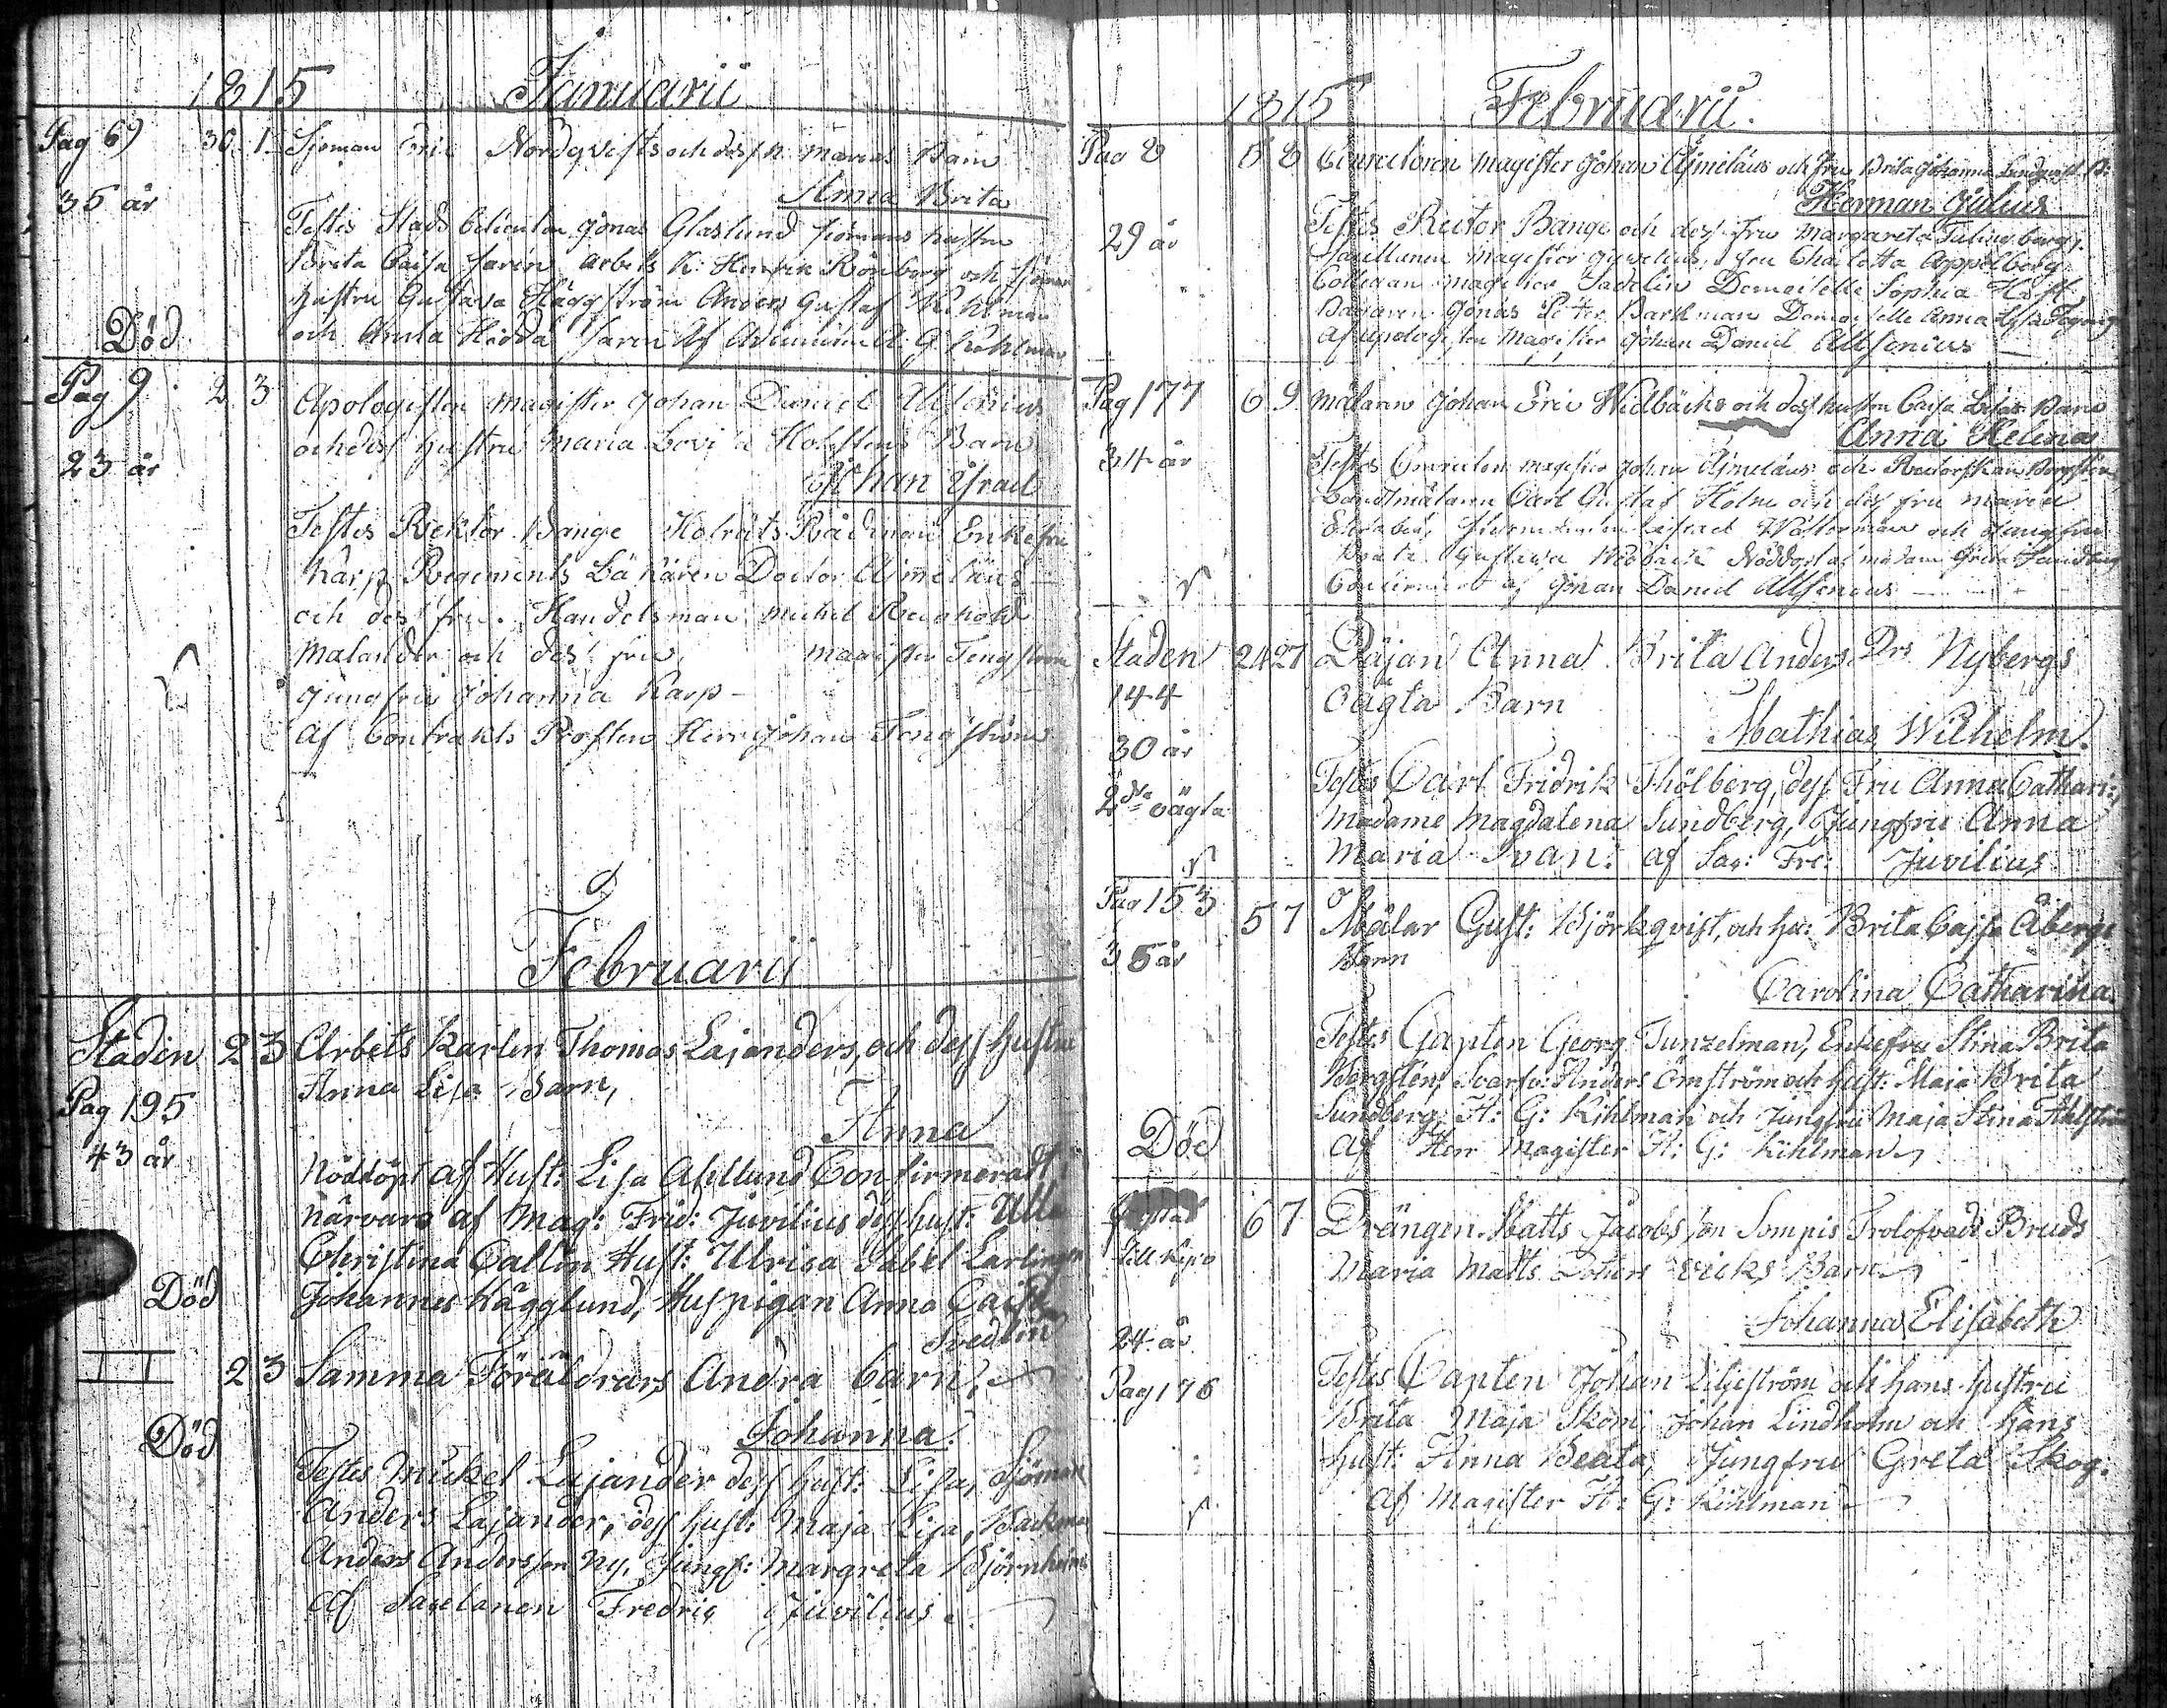 1815 Januarii
Pag 69 30. 1. Sjöman Eric Nordqvists och dess h. Marias Barn
Anna Brita
35 år
Testes Stads Jonas Glaslund Hustru
Brita Caisa arbets K: Henrik Rönberg och
hustru Gustava Häggström Anders Gustaf Kihlman
och Anna Hedda Af A: G: Kihlman
Död
Pag 9. 2 3 Apologisten Magister Johan Daniel Alcenius
och dess hustru Maria Lovisa Holstens Barn
23 år
Johan Israel
Testes Rektor Bange Rådman Enkefru
Karp Regements Läkaren Doctor
och dess fru. Handelsman Mickel Reinhold
Malander och dess fru, Magister Tengström
Jungfru Johanna Karp
af Contrakts Prosten Herr Johan Tengström
Februarii
Staden 2 3 Arbets Karlen Thomas Lajanders, och dess hustru
Anna Lisa Barn,
Pag 195
Anna
43 år
Nöddöpt af Hust: Lisa Asplund Confirmeradt
närvaro af Mag: Frid: Juvilius dess hust: Ulla
Christina Callin Hust: Ulrica Sabel
Johannes Hägglund, Huspigan Anna Caisa
Svedlin
Död
II 2 3 Samma Föräldrars Andra barn,
Johanna.
Död
Testes Mickel Lajander dess hust: Lisa, Sjöman
Anders Lajander, dess hust: Maja Lisa, Backman
Anders Andersson Ny, Jungf: Margreta Björnholm
Af Sacelanen Fredric Juvilius.
1815 Februarii.
Pag 8 6 8 Conrectoren Magister Johan Ajmelæus och Fru Brita Johanna Lundqvist B:
Herman Julius
29 år
Testes Rector Bange och dess fru Margareta
Sacellanen Magister Juvelius, fru Charlotta Appelberg
Collegan Magister Sadelin Demoiselle Sophia
Jonas Peter Barkman Demoiselle Anna
af Apologisten Magister Johan Daniel Alcenius
Pag 177 6 9 Målaren Johan Eric Widbäcks och dess hustru Caisa Lisas Barn
Anna Helena
34 år
Testes Conrectorn Magister Johan Ajmelæus och Bergsten
Landtmätaren Carl Gustaf Holm och dess fru Maria
Westerman och Jungfru
Gustava Widbäck Nöddöpt af Madam Greta Sandberg
Confirmerat af Johan Daniel Alcenius
Staden 24 27 Pijan Anna Brita Anders Drs Nybergs
144 Oägta Barn
Mathias Wilhelm.
30 år
2dra oägta
Testes Carl Fridrik Thölberg, dess Fru Anna Cathari:,
Madame Magdalena Sundberg, Jungfru Anna
Maria Svan: af Sac: Fre: Juvilius
Pag 153 5 7 Målar Gust: Björkqvist, och hu: Brita Cajsa Åbergs
35 år Barn
Carolina Catharina.
Testes Capten Georg Tunzelman, Enkefru Stina Brita
Bergstén, Svarfv: Anders Omström och hust: Maja Brita
Sundberg, A: G: Kihlman och Jungfru Maja Stina Ahlström
Af Herr Magister A: G: Kihlman
Död
6 7 Drängen Matts Jacobsson Sompis Trolofvade Bruds
Maria Matts Doters Vicks Barn
Johanna Elisabeth
24 år
Testes Capten Johan Liljeström och hans hustru
Pag 176
Brita Maja Skom; Johan Lindholm och hans
hust: Anna Beata, Jungfru Greta Skog.
af Magister A: G: Kihlman